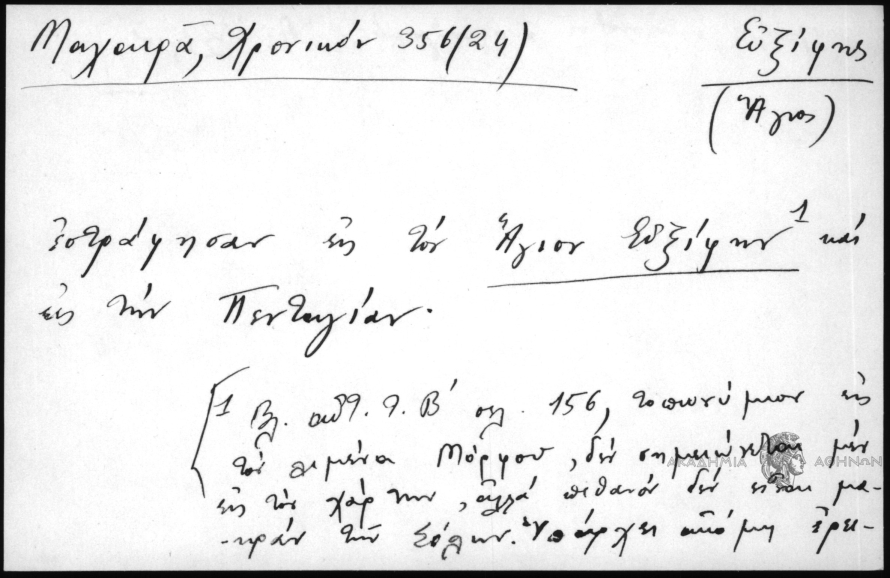 Μαχαιρᾶ, Χρονικόν 356/24)
Εὐξίφης
(Ἅγιος)
ἐστράφησαν εἰς τὸν Ἅγιον Εὐξίφην¹ καὶ
εἰς τὴν Πενταγίαν.
1 Βλ. αὐτ. τ. Β' σελ. 156, τοπωνύμιον εἰς
τὸν λιμένα Μόρφου, δὲν σημειώνεται μὲν
εἰς τὸν χάρτην, ἀλλὰ πιθανὸν δὲν εἶναι μα-
-κρὰν τῶν Σόλων. Ὑπάρχει ἀκόμη ἐρει-
ΑΚΑΔΗΜΙΑ ΑΘΗΝΩΝ